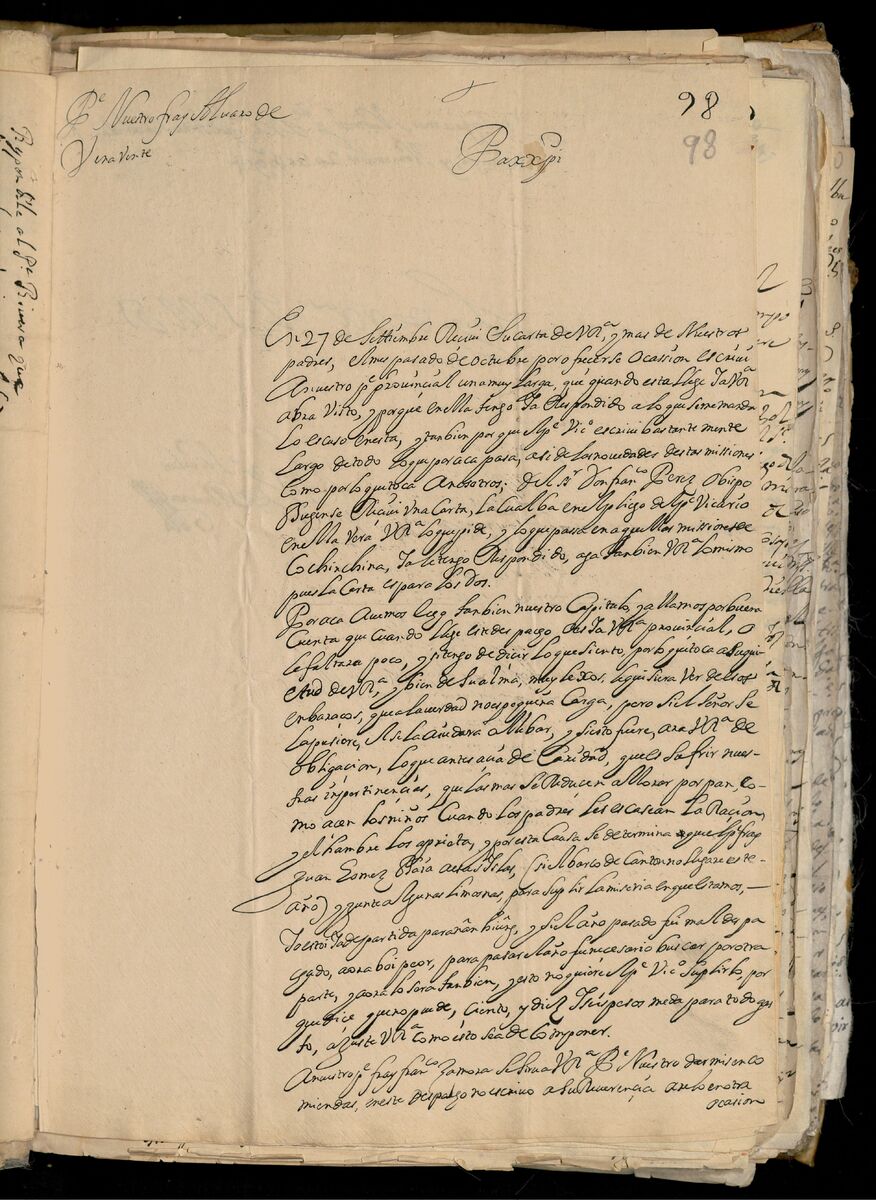 98
98
Pe Nuestro fray Alvaro de
Venavente
Pax Xpi
En 27 de Settiembre Recivi su carta de VRa, y mas de Nuestros
padres, el mes pasado de octubre por ofrecerse Ocassion escrivi
A nuestro pe provincial una muy larga, que quando esta llege Ia VRa
abra Visto, y porque en ella tengo Ia Respondido a lo que se me manda
Lo escuso en esta, y tambien por que Al pe Vico escrivi bastantemente
Largo de todo lo que por aca pasa, asi de las novedades destas missiones
como por lo que toca A nosotros; del Sr Don franco Perez Obispo
Bugense Recivi Una Carta, La cual ba en el pliego del pe Vicario
en ella Verá VRa lo que pide, y lo que pasa en aquellas missiones de
Cochinchina, Ia le tengo Respondido, aga tanbien VRa lo mismo
pues la Carta es para los Dos.
Por aca Avemos tambien nuestro Capitulo, y allamos por buena
Cuenta que cuando llege este despacgo es Ia VRa provincial, o
le faltara poco, y si tengo de dicir lo que siento, por lo que toca a la qui
etud de VRa, y bien de su alma, muy lexos le quisiera Ver de esos
enbaraços, que a la verdad no es pequeña Carga, pero si el Señor Se
la pusiere, El se la aiudara A llebar, y si esto fuere, ara VRa de
Obligacion, lo que antes acia de Caridad, que es sufrir nues-
tras inpertinencias, que las mas se Reducen a llorar por pan, co-
mo acen los niños Cuando los padres les escasean La Racion,
y el hambre los aprieta, y por esta Causa se determina que el pe fray
Juan Gomez Baia a estas Islas, (si el barco de Canton no lugar este
año) y junte algunas limosnas, para suplir la miseria en que estamos,—
Io estoi Ia de partida para nan hiung, y si el año pasado fui mal despa
cgado, aora boi peor, para pasar el año fue necesario buscar por otra
parte, y aora lo sera tanbien, y esto no quiere el pe Vico suplirlo, por
que dice que no puede, Ciento, y diez I seis pesos me da para todo gas
to, ajuste VRa como esto sea de componer.
A nuestro pe fray franco Zamora se sirva VRa Pe Nuestro dar mis enco
miendas, en este despacgo no escrivo a su Reverencia arelo en otra
ocasion